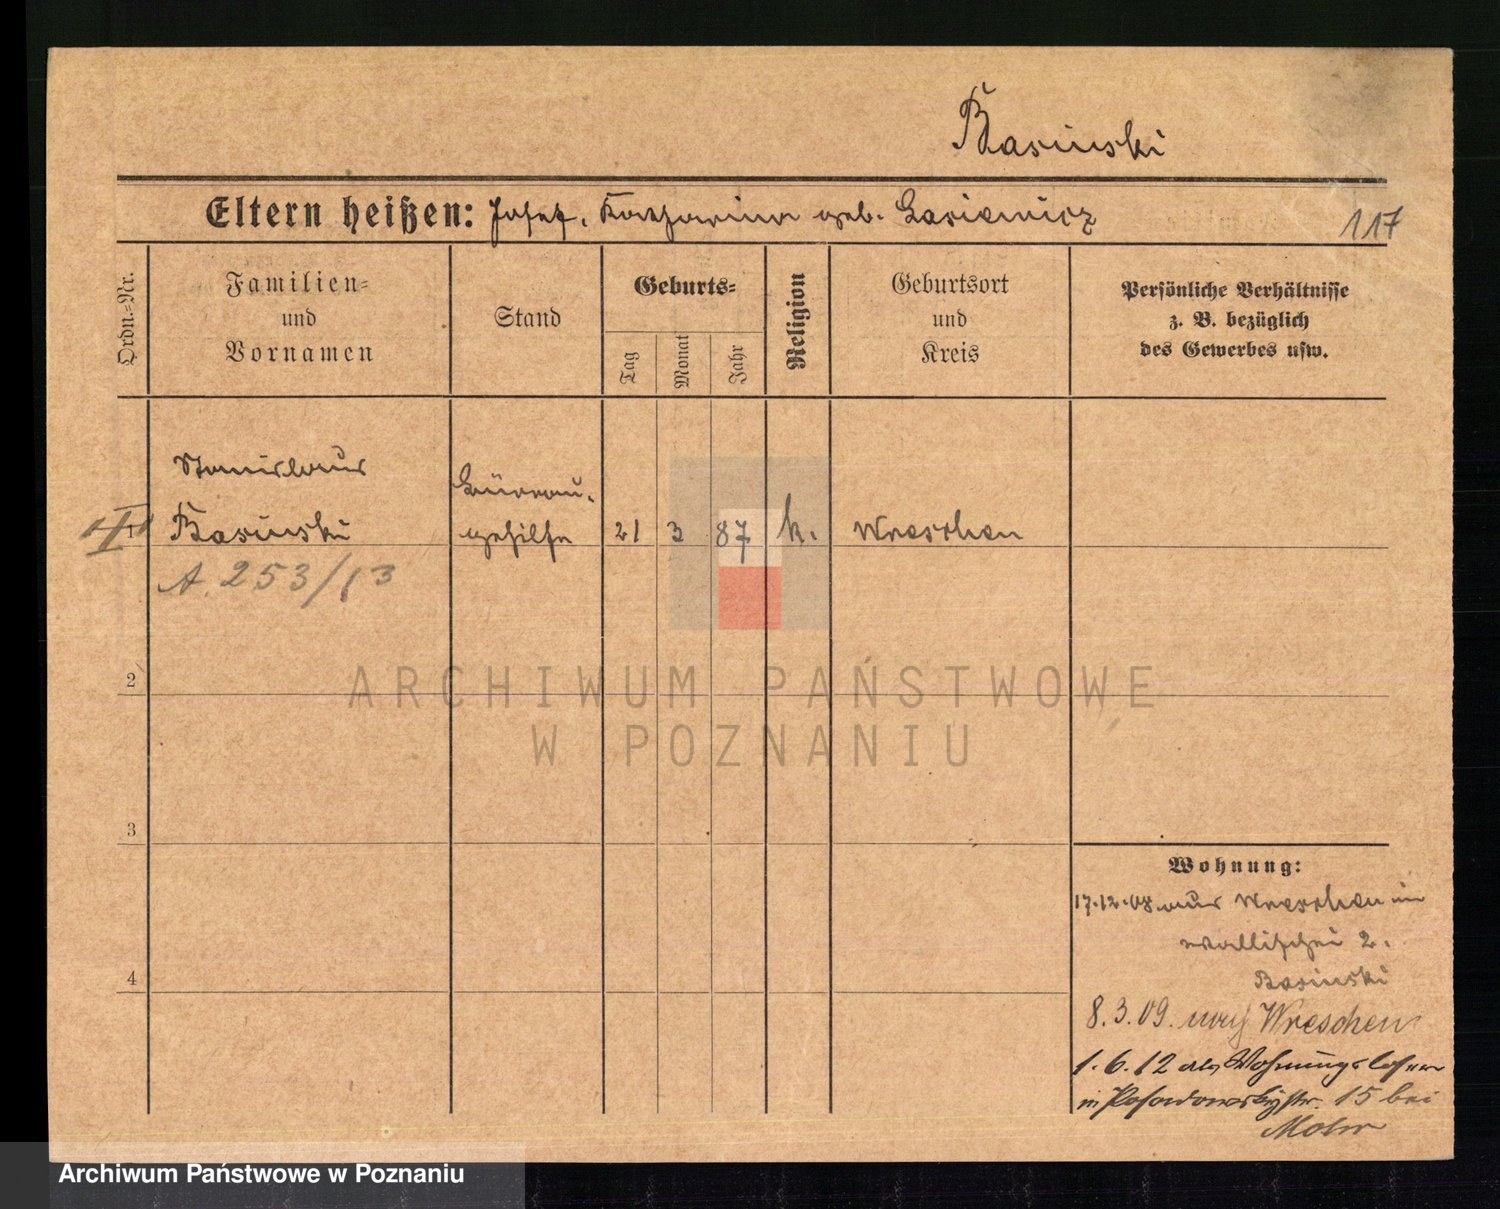 Basinski
Eltern heißen: Josef, Katharina geb. Lasiewicz
117
Ordn.-Nr.
Familien-
und
Vornamen
Stand
Geburts-
Tag
Monat
Jahr
Religion
Geburtsort
und
Kreis
Persönliche Verhältnisse
z. B. bezüglich
des Gewerbes usw.
Stanislaus
Basinski
Bürau-
gehilfe
1
21
3
87
k.
Wreschen
A. 253/13
2
3
4
Wohnung:
17.12.08 aus Wreschen in
Wallischei 2.
Basinski
8.3.09. nach Wreschen
1.6.12 als Wohnungsloser
in Posadowskystr. 15 bei
ARCHIWUM PAŃSTWOWE
W POZNANIU
Archiwum Państwowe w Poznaniu